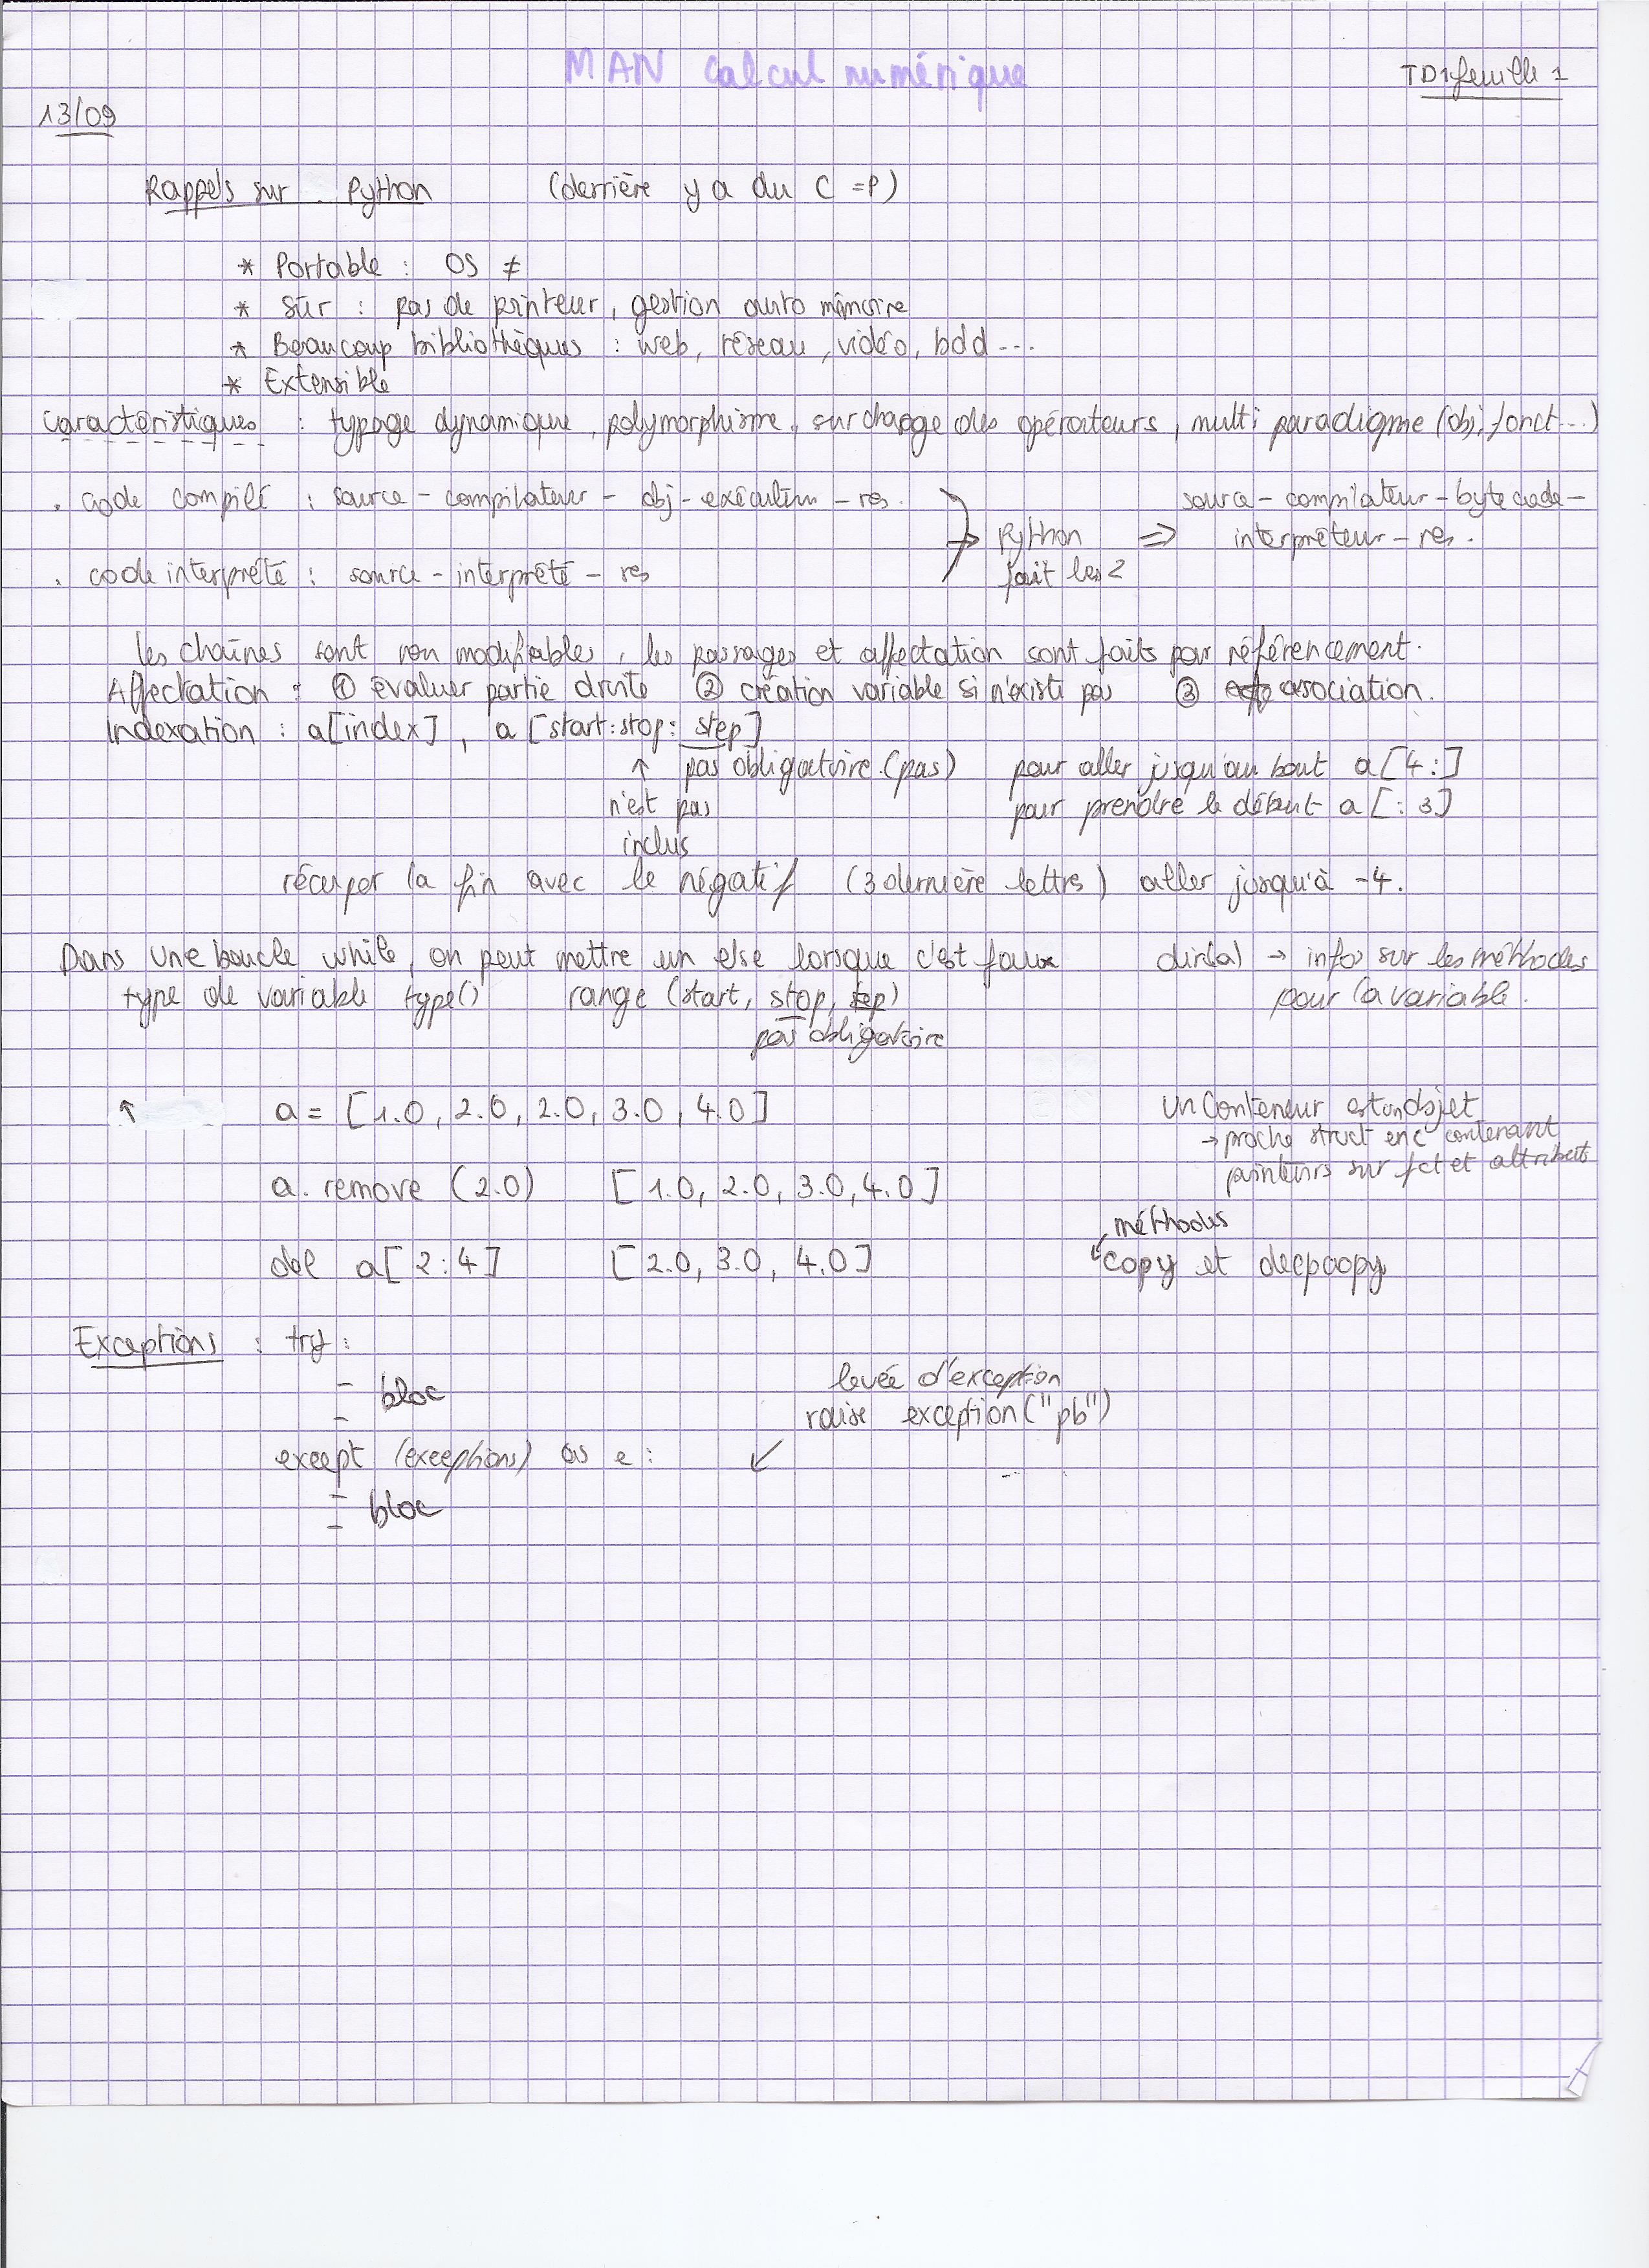 MAN Calcul numérique
TD1 feuille 1
13/09
Rappels sur Python (derrière y a du C =P)
* Portable : OS ≠
* Sûr : pas de pointeur, gestion auto mémoire
* Beaucoup bibliothèques : web, réseau, vidéo, bdd ...
* Extensible
Caractéristiques : typage dynamique, polymorphisme, surchage des opérateurs, multi paradigme (obj, fonct...)
. code compilé : source - compilateur - obj - exécution - res.
. code interprété : source - interprété - res
→ Python
fait les 2
⇒ source - compilateur - bytecode -
interpréteur - res.
les chaînes sont non modifiables, les passages et affectation sont faits par référencement.
Affectation : ① évaluer partie droite ② création variable si n'existe pas ③ association.
Indexation : a[index], a [start:stop: step]
↑ pas obligatoire (pas)
n'est pas
inclus
pour aller jusqu'au bout a[4:]
pour prendre le début a[:3]
récuper la fin avec le négatif (3 dernière lettres) aller jusqu'à -4.
Dans une boucle while, on peut mettre un else lorsque c'est faux
dir(a) → infos sur les méthodes
pour la variable.
type de variable type() range (start, stop, step)
pas obligatoire
↑ a = [1.0, 2.0, 2.0, 3.0, 4.0]
un conteneur est un objet
→ proche struct en c contenant
pointeurs sur fct et attributs
a. remove (2.0) [1.0, 2.0, 3.0, 4.0]
méthodes
del a[2:4] [2.0, 3.0, 4.0]
copy et deepcopy
Exceptions : try :
- bloc
-
levée d'exception
raise exception("pb")
except (exceptions) as e : ↙
- bloc
-